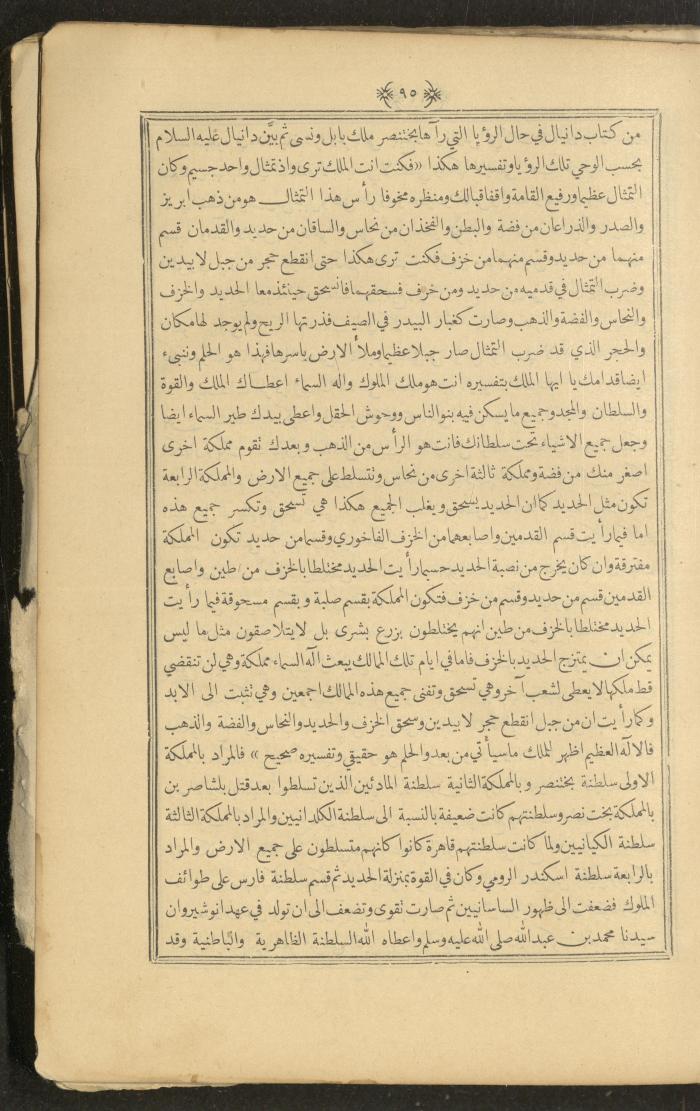 ٩٥
من كتاب دانيال في حال الرؤيا التي رآها بختنصر ملك بابل ونسى ثم بيَّن دانيال عليه السلام
بحسب الوحي تلك الرؤيا وتفسيرها هكذا «فكنت انت الملك ترى واذ تمثال واحد جسيم وكان
التمثال عظيما ورفيع القامة واقفا قبالك ومنظره مخوفا رأس هذا التمثال هو من ذهب ابريز
والصدر والذراعان من فضة والبطن والفخذان من نحاس والساقان من حديد والقدمان قسم
منهما من حديد وقسم منهما من خزف فكنت ترى هكذا حتى انقطع حجر من جبل لا بيدين
وضرب التمثال في قدميه من حديد ومن خزف فسحقهما فانسحق حينئذ معا الحديد والخزف
والنحاس والفضة والذهب وصارت كغبار البيدر في الصيف فذرتها الريح ولم يوجد لها مكان
والحجر الذي قد ضرب التمثال صار جبلا عظيما وملأ الارض باسرها فهذا هو الحلم وننبىء
ايضا قدامك يا ايها الملك بتفسيره انت هو ملك الملوك واله السماء اعطاك الملك والقوة
والسلطان والمجد وجميع ما يسكن فيه بنو الناس ووحوش الحقل واعطى بيدك طير السماء ايضا
وجعل جميع الاشياء تحت سلطانك فانت هو الرأس من الذهب وبعدك تقوم مملكة اخرى
اصغر منك من فضة ومملكة ثالثة اخرى من نحاس وتتسلط على جميع الارض والمملكة الرابعة
تكون مثل الحديد كما ان الحديد يسحق ويغلب الجميع هكذا هي تسحق وتكسر جميع هذه
اما فيما رأيت قسم القدمين واصابعهما من الخزف الفاخوري وقسما من حديد تكون المملكة
مفترقة وان كان يخرج من نصبة الحديد حسبما رأيت الحديد مختلطا بالخزف من طين واصابع
القدمين قسم من حديد وقسم من خزف فتكون المملكة بقسم صلبة وبقسم مسحوقة فيما رأيت
الحديد مختلطا بالخزف من طين انهم يختلطون بزرع بشرى بل لا يتلاصقون مثل ما ليس
يمكن ان يمتزج الحديد بالخزف فاما في ايام تلك الممالك يبعث اله السماء مملكة وهي لن تنقضي
قط ملكها لا يعطى لشعب آخر وهي تسحق وتفنى جميع هذه الممالك اجمعين وهي تثبت الى الابد
وكما رأيت ان من جبل انقطع حجر لا بيدين وسحق الخزف والحديد والنحاس والفضة والذهب
فالاله العظيم اظهر للملك ما سيأتي من بعد والحلم هو حقيقي وتفسيره صحيح » فالمراد بالمملكة
الاولى سلطنة بختنصر وبالمملكة الثانية سلطنة المادئين الذين تسلطوا بعد قتل بلشاصر بن
بالمملكة بخت نصر وسلطنتهم كانت ضعيفة بالنسبة الى سلطنة الكلدانيين والمراد بالمملكة الثالثة
سلطنة الكيانيين ولما كانت سلطنتهم قاهرة كانوا كانهم متسلطون على جميع الارض والمراد
بالرابعة سلطنة اسكندر الرومي وكان في القوة بمنزلة الحديد ثم قسم سلطنة فارس على طوائف
الملوك فضعفت الى ظهور الساسانيين ثم صارت تقوى وتضعف الى ان تولد في عهد انوشيروان
سيدنا محمد بن عبد الله صلى الله عليه وسلم واعطاه الله السلطنة الظاهرية والباطنية وقد